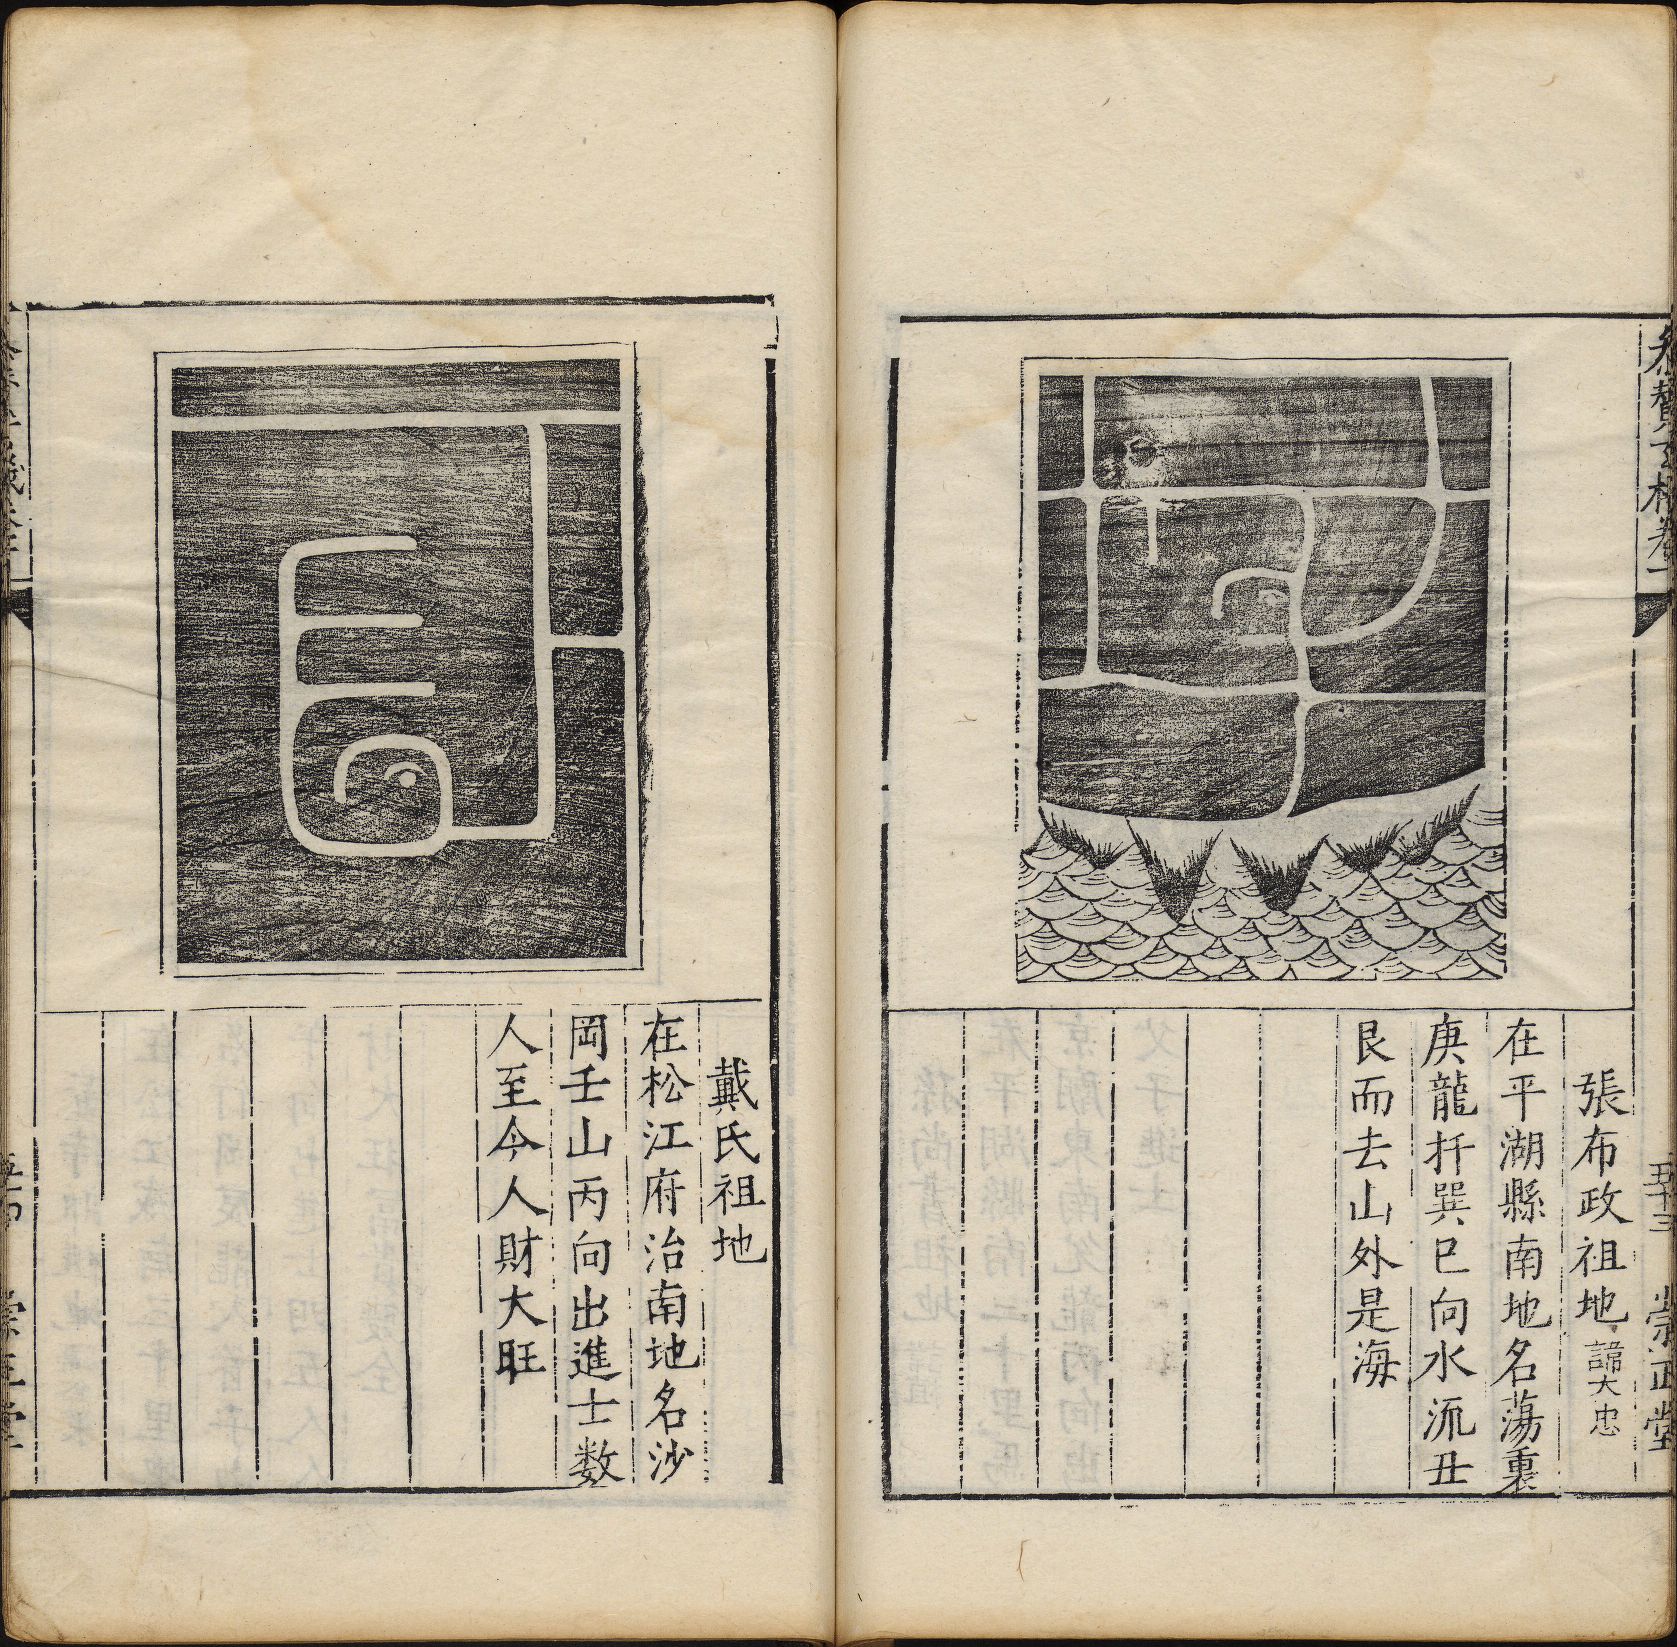 參贊玄機卷一
五十三
崇正堂
張布政祖地 諱大忠
在平湖縣南地名蕩裏
庚龍扦巽巳向水流丑
艮而去山外是海
戴氏祖地
在松江府治南地名沙
岡壬山丙向出進士数
人至今人財大旺